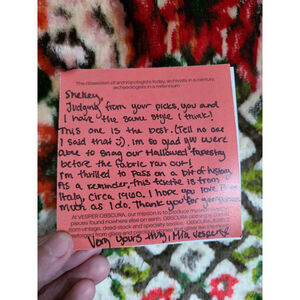 The obsession of anthropologists today, archivists in a century,
archaeologists in a millennium
Shelley,
Judging from your picks, you and
I have the same style, I think!
This one is the best. (Tell no one
I said that ;). Im so glad you were
able to snag our Hallowed tapestry
before the fabric ran out!
I'm thrilled to pass on a bit of history.
As a reminder, this textile is from
Italy, circa 1900. I hope you love it as
much as I do. Thank you for your
At VESPER OBSCURA, our mission is to produce
pieces found nowhere else on earth. OBSCURA
from vintage, dead-stock and specialty
from glass and
Very yours truly, Mia Vesper